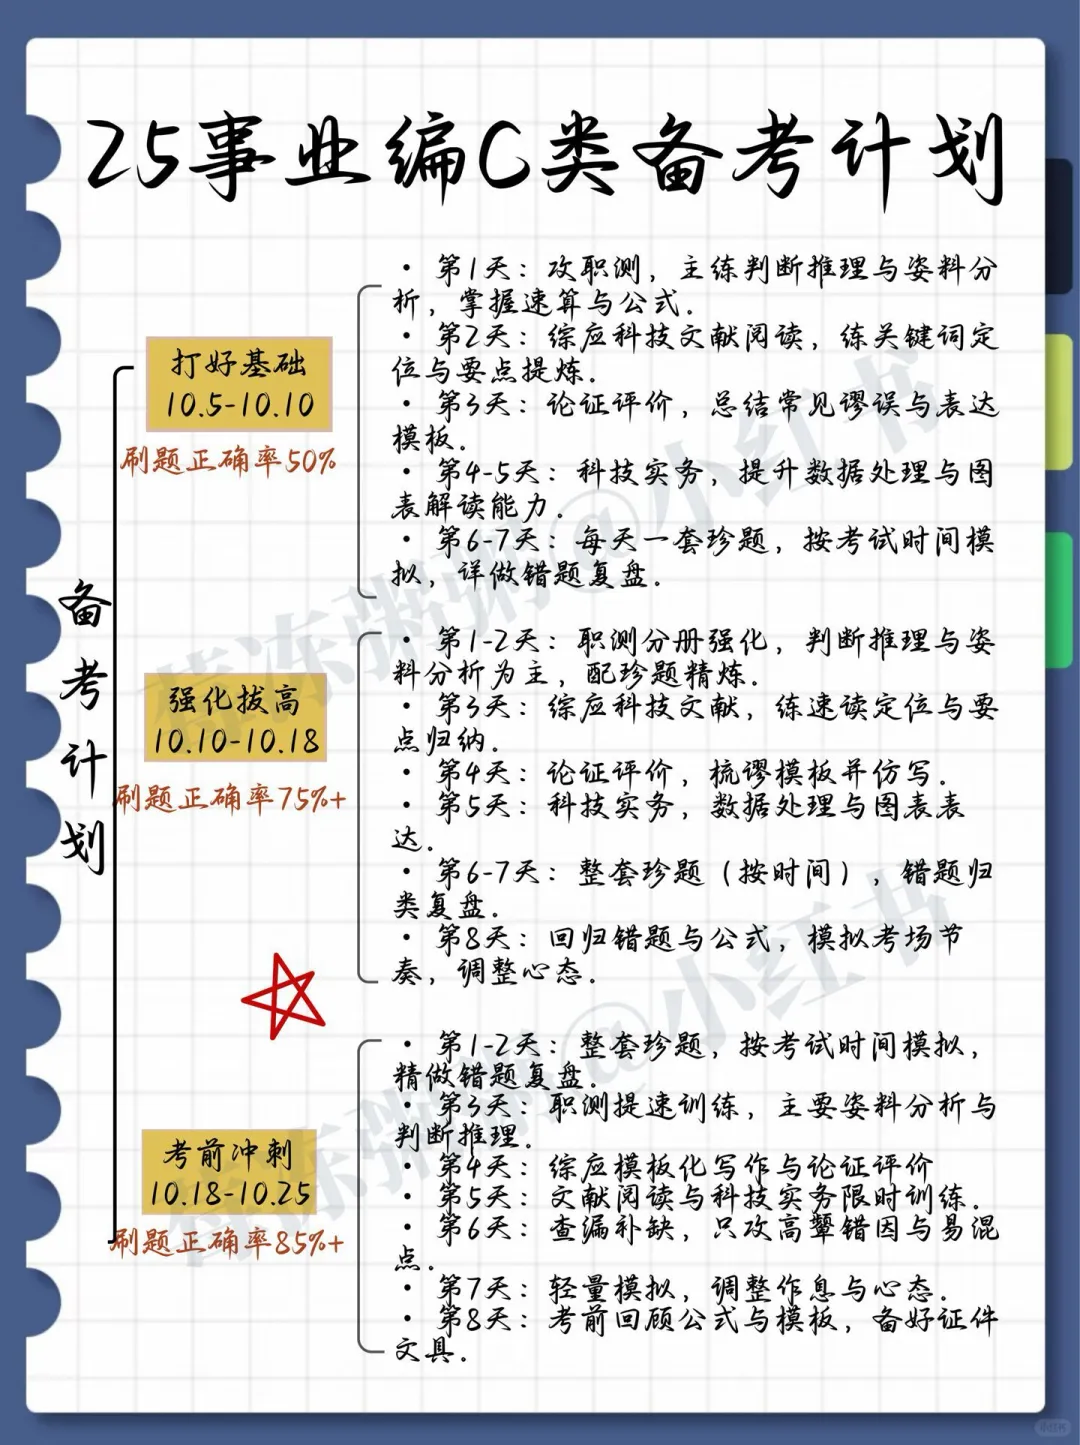 25事业编C类备考计划
备考计划
打好基础
10.5-10.10
刷题正确率50%
• 第1天：攻职测，主练判断推理与姿料分
析，掌握速算与公式.
• 第2天：综应科技文献阅读，练关键词定
位与要点提炼.
• 第3天：论证评价，总结常见谬误与表达
模板.
• 第4-5天：科技实务，提升数据处理与图
表解读能力.
• 第6-7天：每天一套珍题，按考试时间模
拟，详做错题复盘.
强化拔高
10.10-10.18
刷题正确率75%+
• 第1-2天：职测分册强化，判断推理与姿
料分析为主，配珍题精炼.
• 第3天：综应科技文献，练速读定位与要
点归纳.
• 第4天：论证评价，梳谬模板并仿写.
• 第5天：科技实务，数据处理与图表表
达.
• 第6-7天：整套珍题（按时间），错题归
类复盘.
• 第8天：回归错题与公式，模拟考场节
奏，调整心态.
考前冲刺
10.18-10.25
刷题正确率85%+
• 第1-2天：整套珍题，按考试时间模拟，
精做错题复盘.
• 第3天：职测提速训练，主要姿料分析与
判断推理.
• 第4天：综应模板化写作与论证评价
• 第5天：文献阅读与科技实务限时训练.
• 第6天：查漏补缺，只攻高颦错因与易混
点.
• 第7天：轻量模拟，调整作息与心态.
• 第8天：考前回顾公式与模板，备好证件
文具.